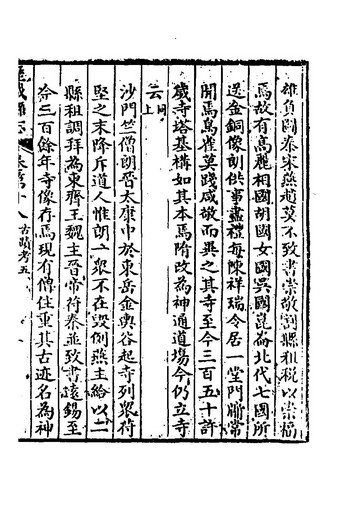 雄負圖秦宋燕趙莫不致書崇敬割縣租稅以崇福
焉故有高麗相國胡國女國吳國崑崙北代七國所
送金銅像朗供事盡禮每陳祥瑞今居一堂門牖常
開焉鳥雀莫踐咸敬而異之其寺至今三百五十許
歲寺塔基構如其本焉隋改為神通道場今仍立寺
云同上
沙門竺僧朗晉太康中於東岳金輿谷起寺列眾苻
堅之末降斥道人惟朗一眾不在毀例燕主給以二
縣租調拜為東齊王魏主晉帝苻秦並致書遺錫至
今三百餘年寺像存焉現有僧住重其古迹名為神
古蹟考五